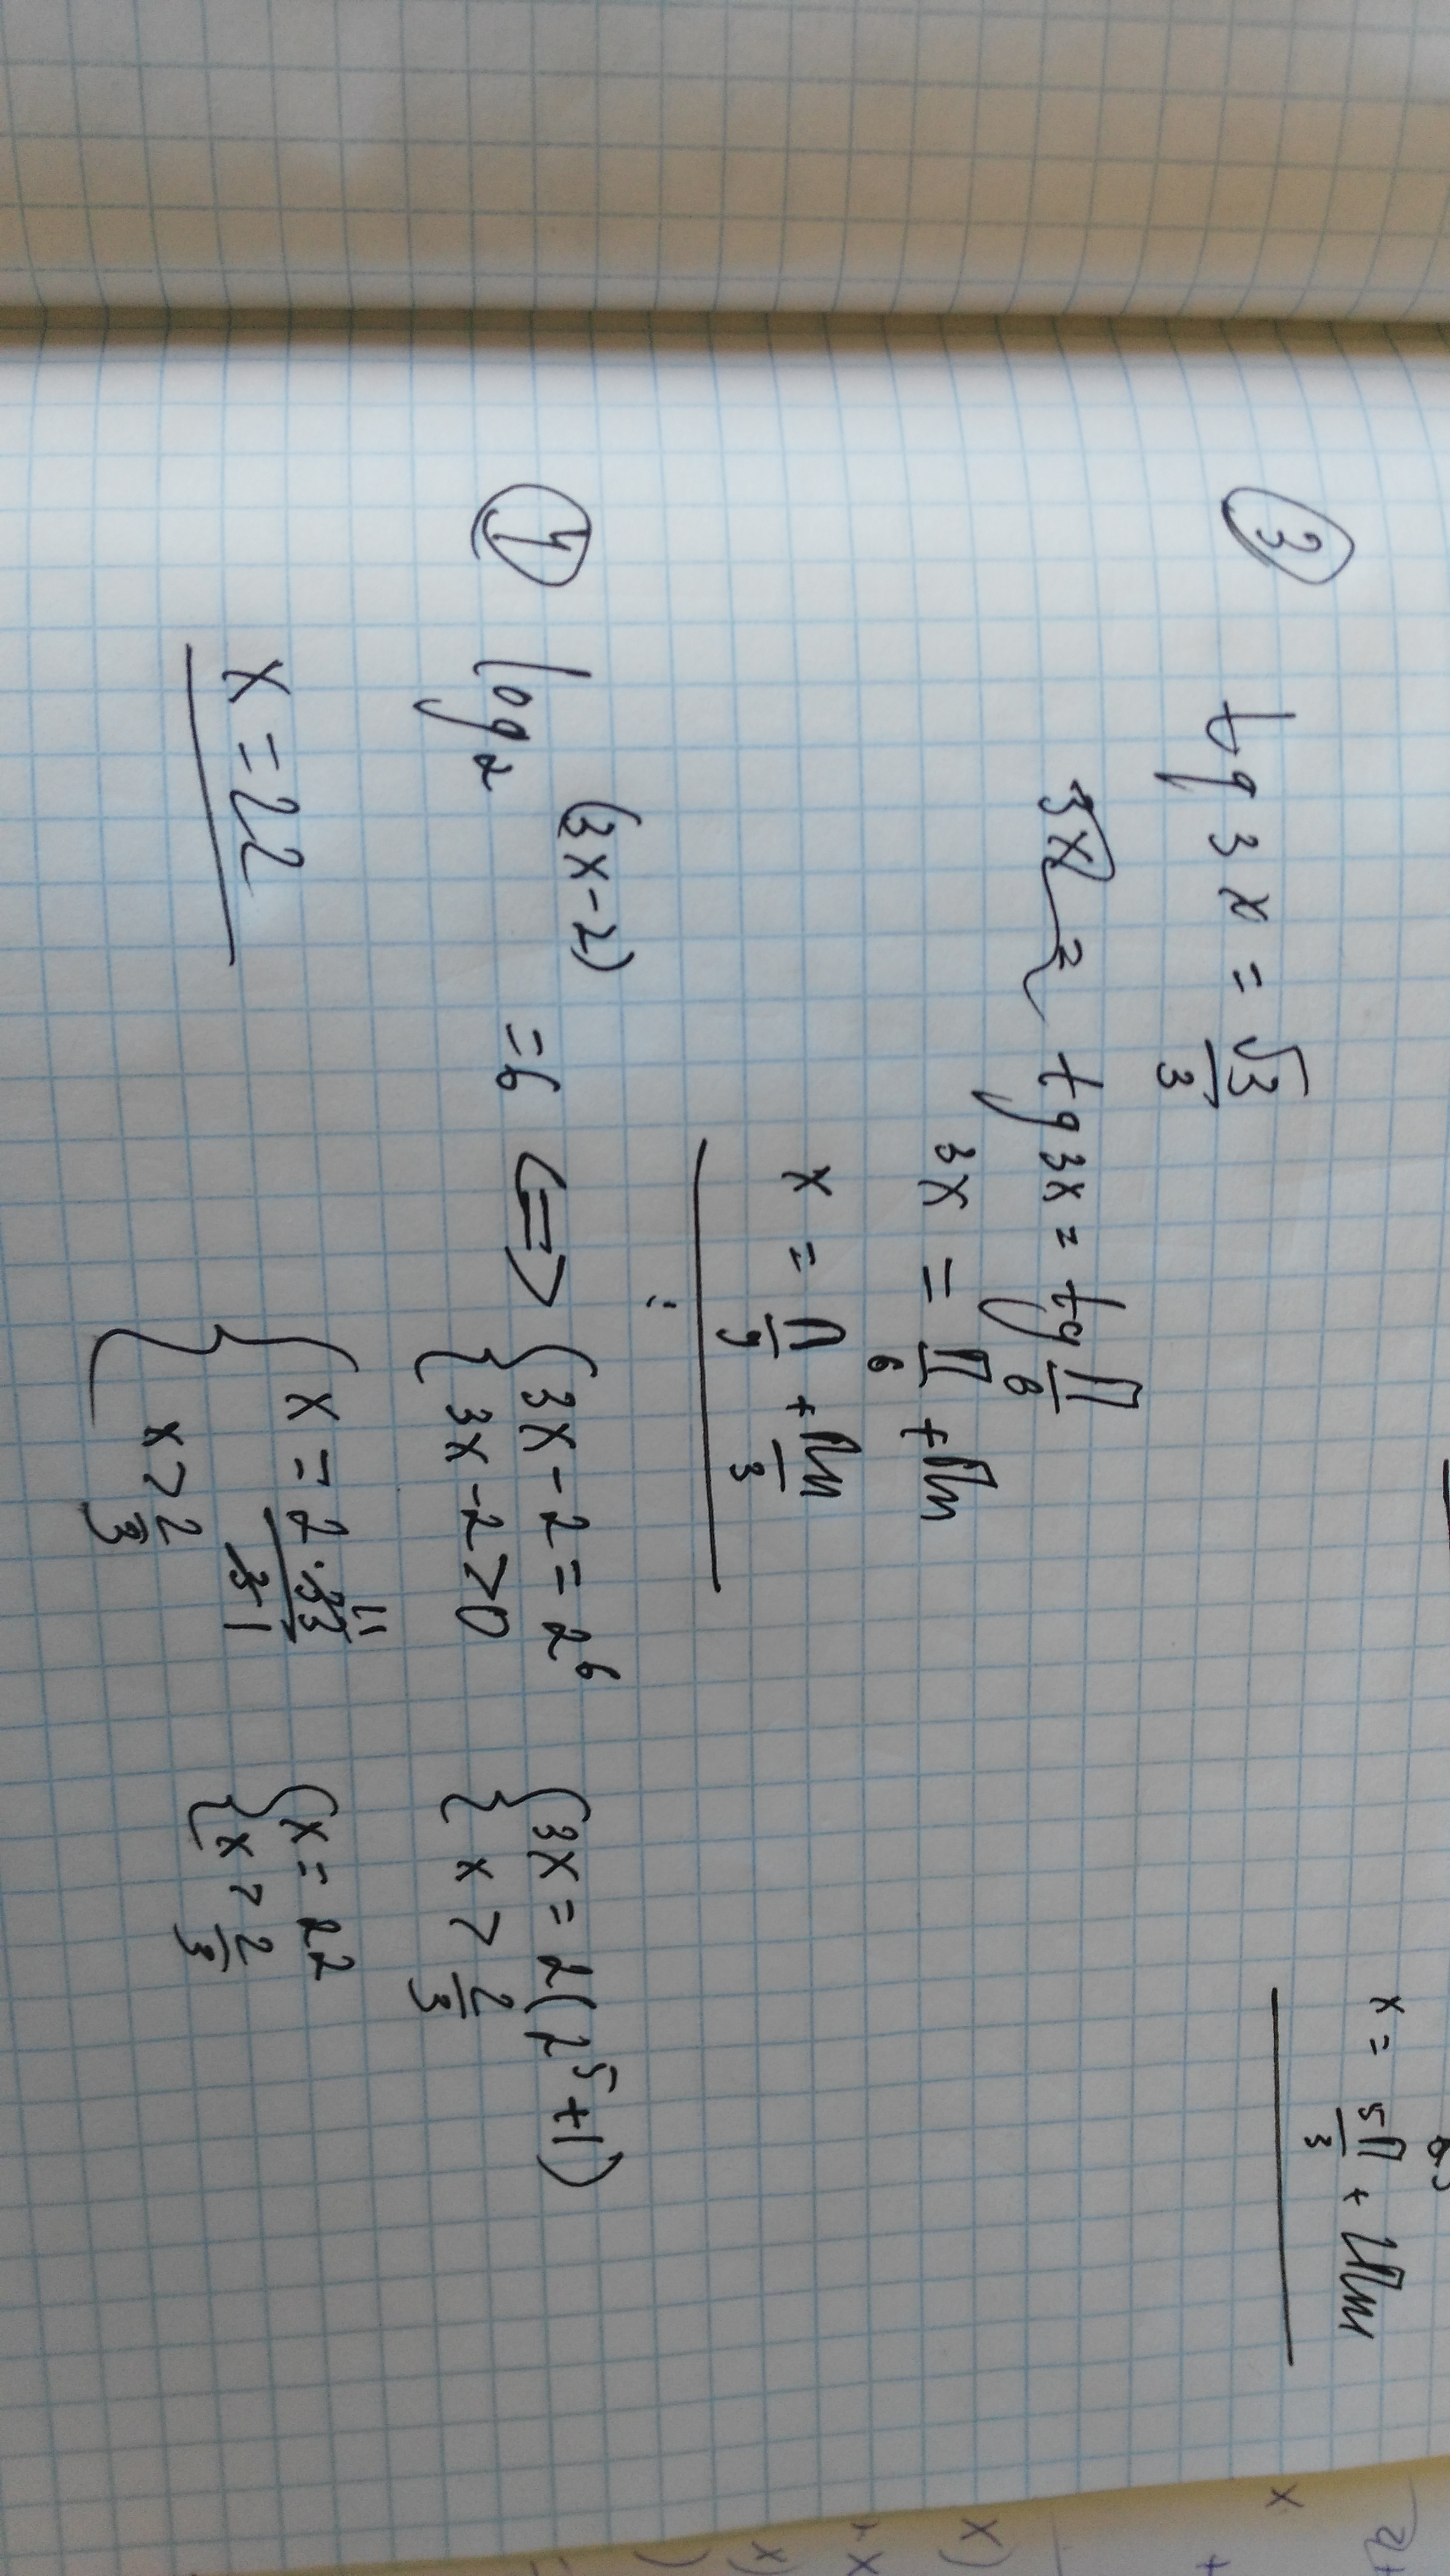 x = 5π/3 + 2πn
③ tg 3x = √3/3
tg 3x = tg π/6
3x = π/6 + πn
x = π/9 + πn/3
④ log₂ (3x-2) = 6 ⟺ { 3x - 2 = 2⁶ { 3x = 2(2⁵+1)
3x - 2 > 0 x > 2/3
{ x = 2·33/3 11 1 { x = 22
x > 2/3 x > 2/3
x = 22